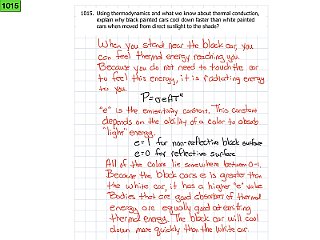 1015
1015. Using thermodynamics and what we know about thermal conduction,
explain why black painted cars cool down faster than white painted
cars when moved from direct sunlight to the shade?
When you stand near the black car, you
can feel thermal energy reaching you.
Because you do not need to touch the car
to feel this energy, it is radiating energy
to you.
P=σeAT⁴
"e" is the emissivity constant. This constant
depends on the ability of a color to absorb
"light" energy.
e=1 for non-reflective black surface
e=0 for reflective surface
All of the colors lie somewhere between 0-1.
Because the black car's e is greater than
the white car, it has a higher "e" value
Bodies that are good absorbers of thermal
energy are equally good at emitting
thermal energy. The black car will cool
down more quickly than the white car.